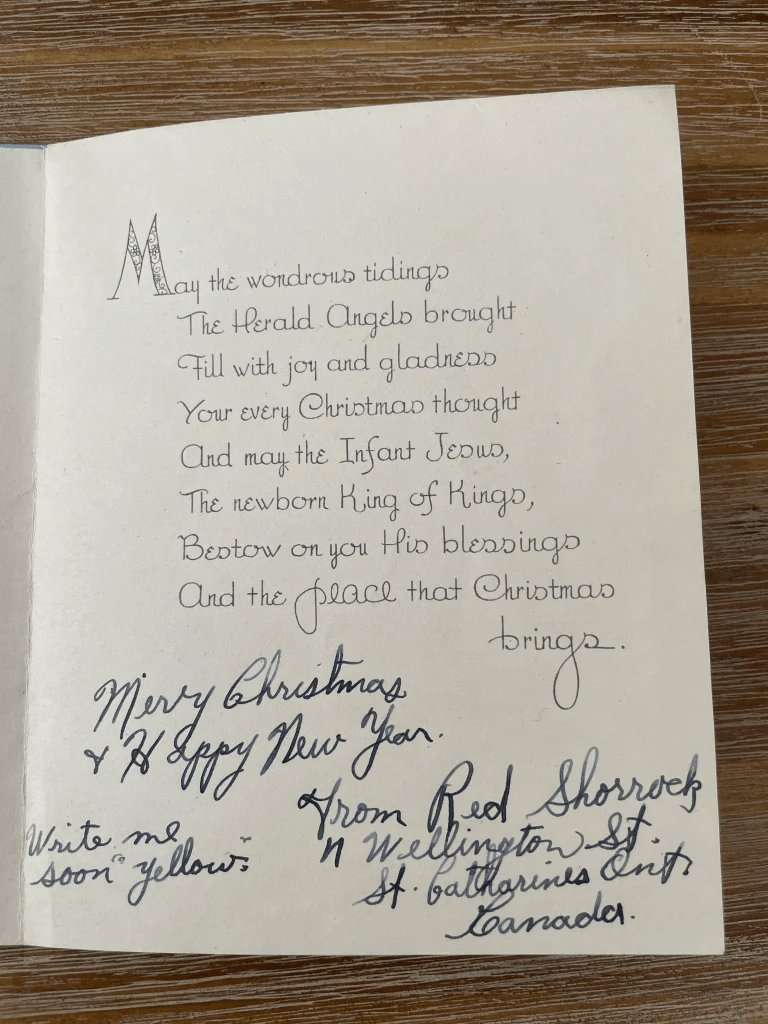 May the wondrous tidings
The Herald Angels brought
Fill with joy and gladness
Your every Christmas thought
And may the Infant Jesus,
The newborn King of Kings,
Bestow on you His blessings
And the peace that Christmas
brings.
Merry Christmas
& Happy New Year.
from Red Shorrock
Wellington St.
St. Catharines Ont.
Canada.
Write me
soon "yellow".